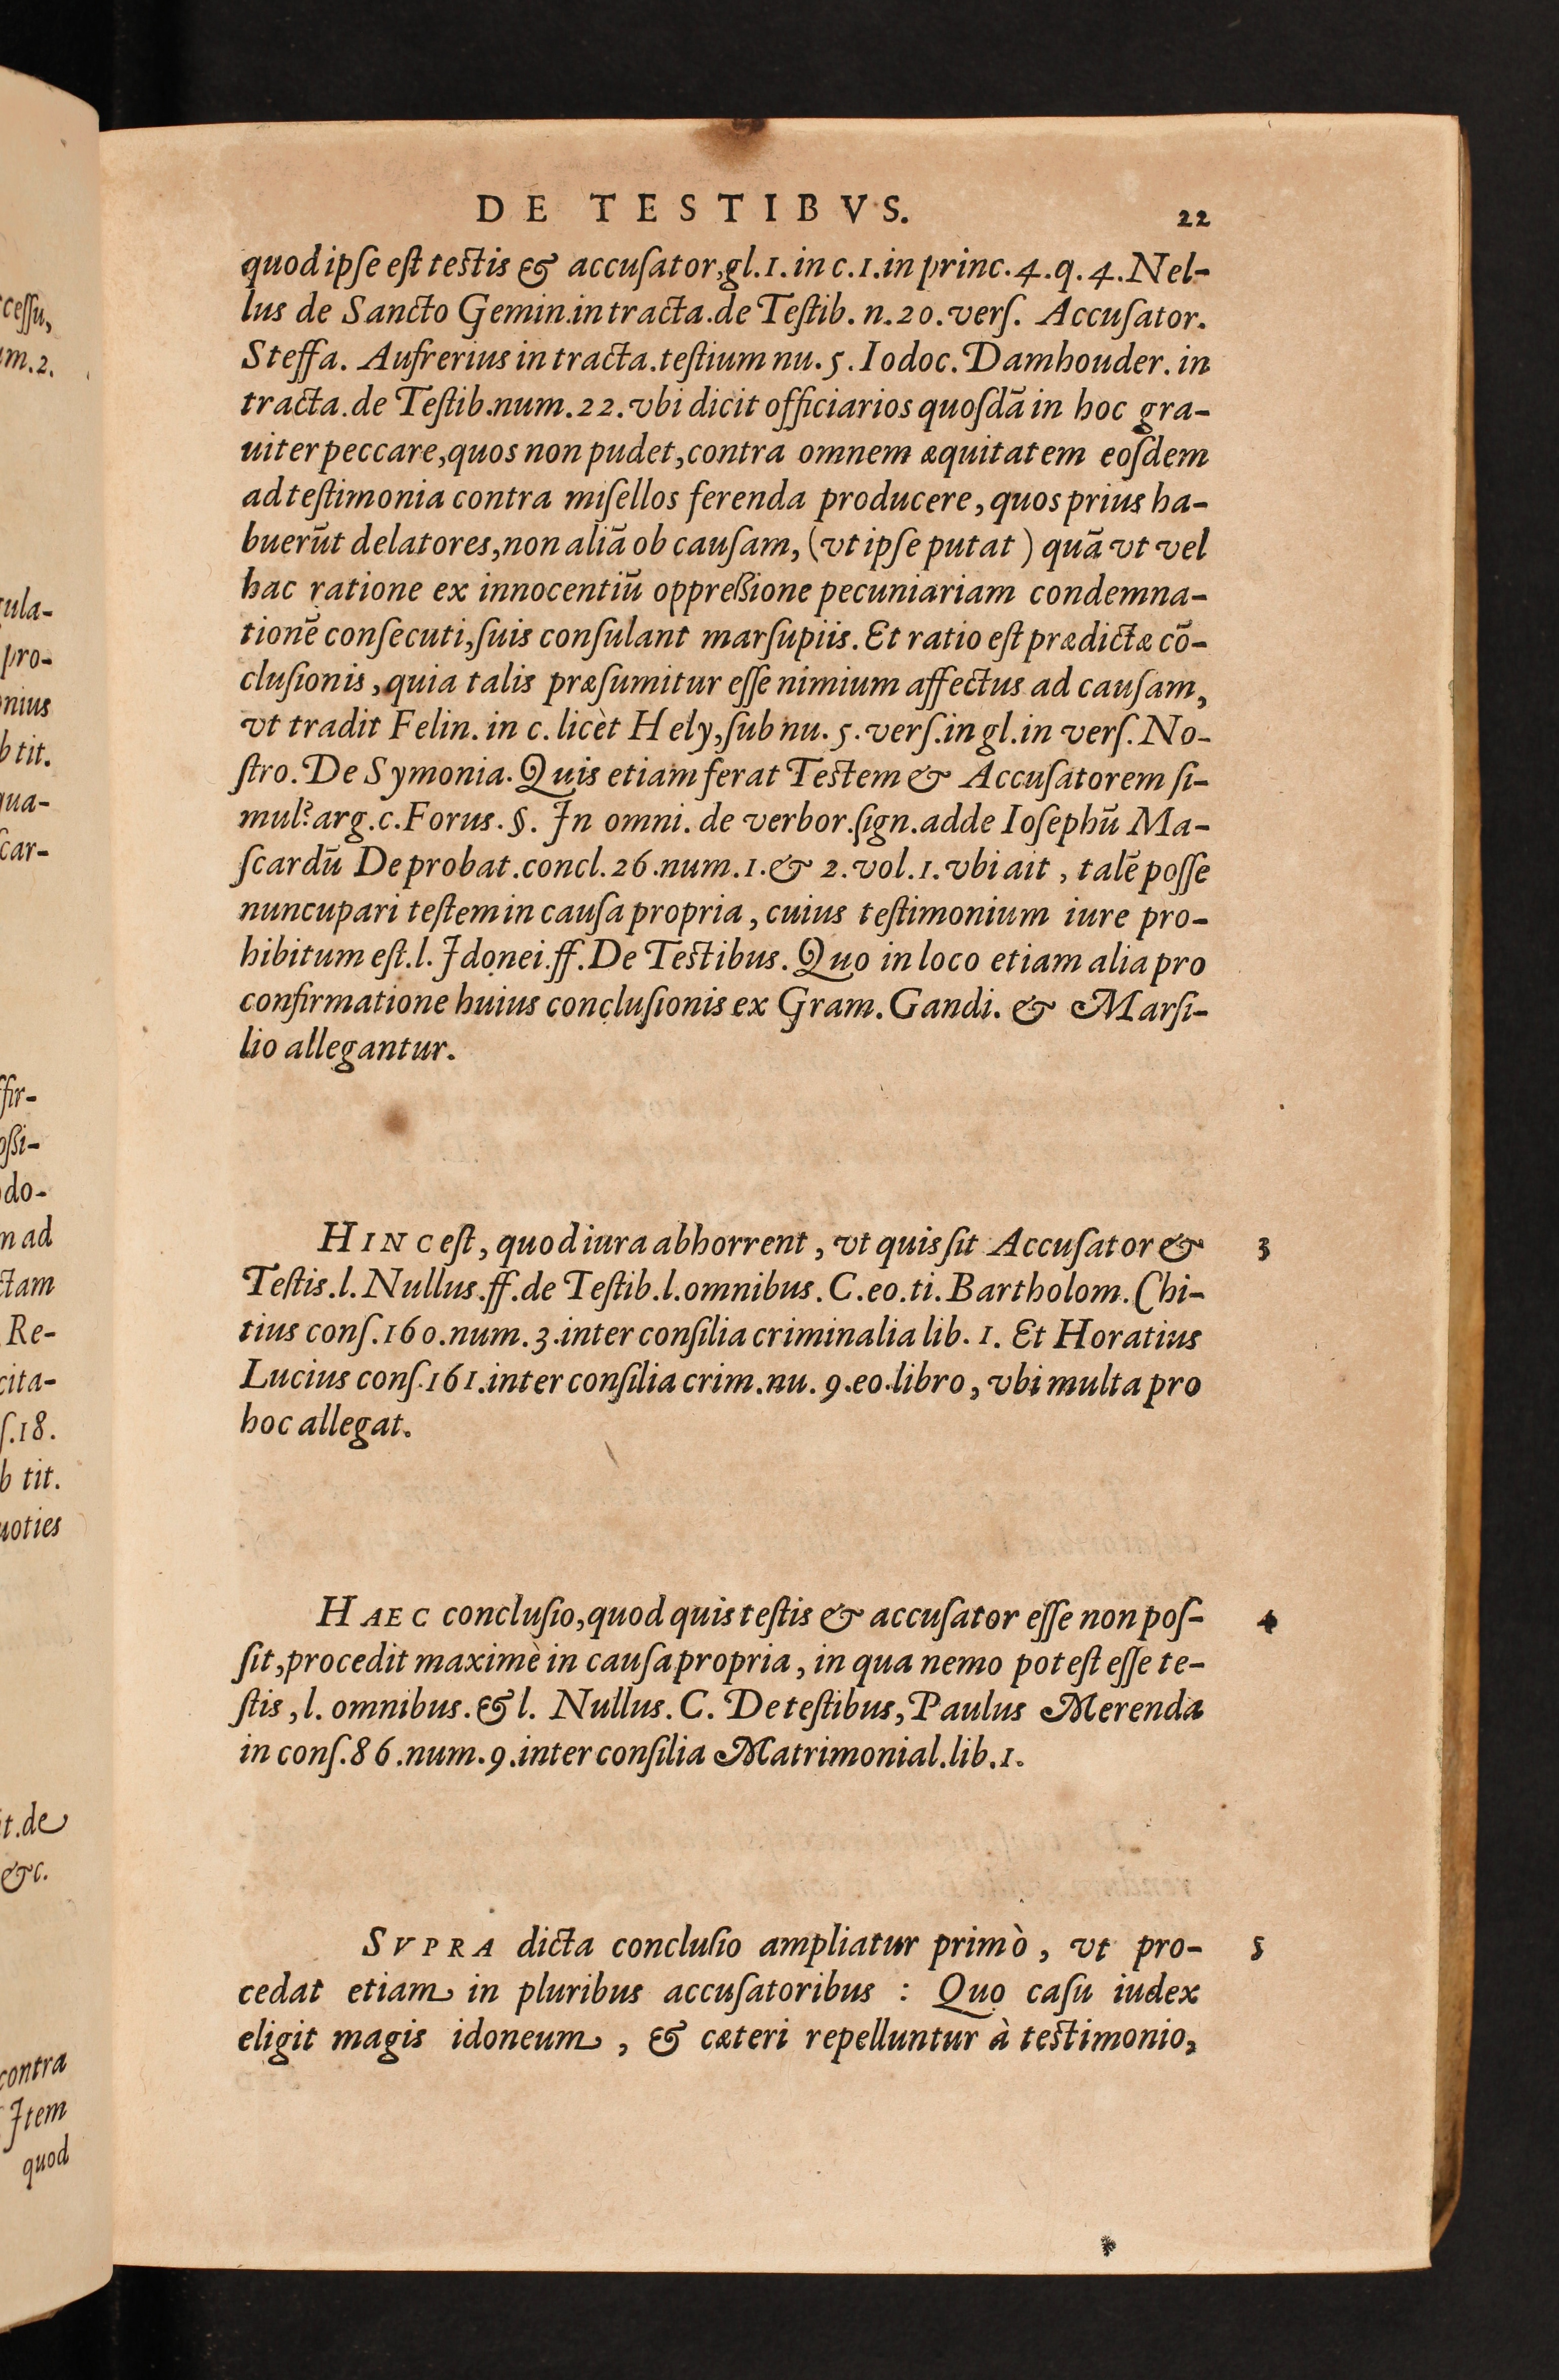 DE TESTIBVS.
22
quod ipſe eſt teſtis & accuſator, gl. 1. in c. 1. in princ. 4. q. 4. Nel-
lus de Sancto Gemin. in tracta. de Teſtib. n. 20. verſ. Accuſator.
Steffa. Aufrerius in tracta. teſtium nu. 5. Iodoc. Damhouder. in
tracta. de Teſtib. num. 22. vbi dicit officiarios quoſdã in hoc gra-
uiter peccare, quos non pudet, contra omnem æquitatem eoſdem
ad teſtimonia contra miſellos ferenda producere, quos prius ha-
buerũt delatores, non aliã ob cauſam, (vt ipſe putat) quã vt vel
hac ratione ex innocentiũ oppreßione pecuniariam condemna-
tionẽ conſecuti, ſuis conſulant marſupiis. Et ratio eſt prædictæ cõ-
cluſionis, quia talis præſumitur eſſe nimium affectus ad cauſam,
vt tradit Felin. in c. licèt Hely, ſub nu. 5. verſ. in gl. in verſ. No-
ſtro. De Symonia. Quis etiam ferat Teſtem & Accuſatorem ſi-
mul? arg. c. Forus. §. In omni. de verbor. ſign. adde Ioſephũ Ma-
ſcardũ De probat. concl. 26. num. 1. & 2. vol. 1. vbi ait, talẽ poſſe
nuncupari teſtem in cauſa propria, cuius teſtimonium iure pro-
hibitum eſt. l. Idonei. ff. De Teſtibus. Quo in loco etiam alia pro
confirmatione huius concluſionis ex Gram. Gandi. & Marſi-
lio allegantur.
HINC eſt, quod iura abhorrent, vt quis ſit Accuſator &
3
Teſtis. l. Nullus. ff. de Teſtib. l. omnibus. C. eo. ti. Bartholom. Chi-
tius conſ. 160. num. 3. inter conſilia criminalia lib. 1. Et Horatius
Lucius conſ. 161. inter conſilia crim. nu. 9. eo. libro, vbi multa pro
hoc allegat.
HAEC concluſio, quod quis teſtis & accuſator eſſe non poſ-
4
ſit, procedit maximè in cauſa propria, in qua nemo poteſt eſſe te-
ſtis, l. omnibus. & l. Nullus. C. De teſtibus, Paulus Merenda
in conſ. 86. num. 9. inter conſilia Matrimonial. lib. 1.
SVPRA dicta concluſio ampliatur primò, vt pro-
5
cedat etiam in pluribus accuſatoribus : Quo caſu iudex
eligit magis idoneum, & cæteri repelluntur à teſtimonio,